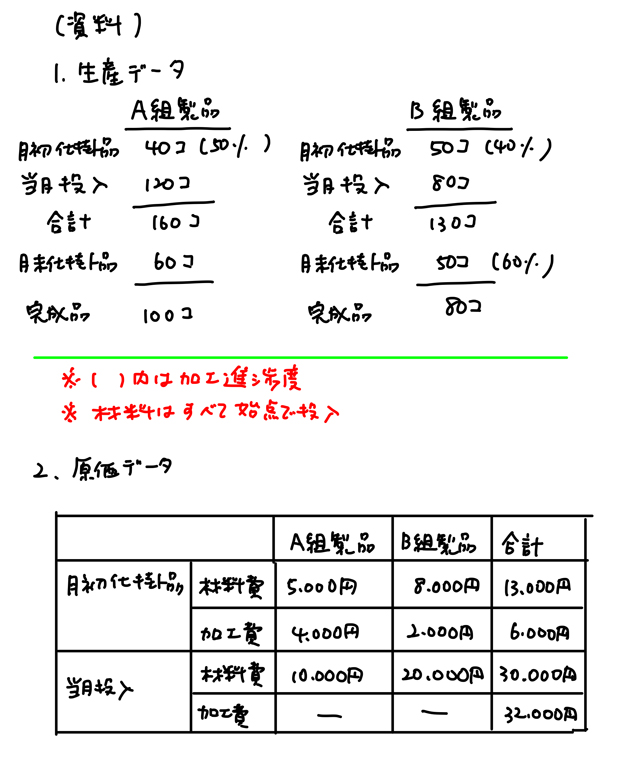 (資料)
1. 生産データ
A組製品 B組製品
月初仕掛品 40コ (50%) 月初仕掛品 50コ (40%)
当月投入 120コ 当月投入 80コ
合計 160コ 合計 130コ
月末仕掛品 60コ 月末仕掛品 50コ (60%)
完成品 100コ 完成品 80コ
※ ( )内は加工進渉度
※ 材料はすべて始点で投入
2. 原価データ
A組製品 B組製品 合計
月初仕掛品 材料費 5.000円 8.000円 13.000円
加工費 4.000円 2.000円 6.000円
当月投入 材料費 10.000円 20.000円 30.000円
加工費 — — 32.000円